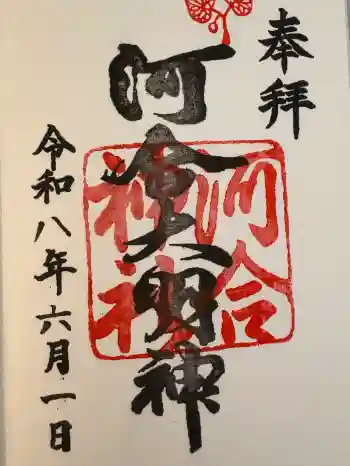 奉拝
河合大明神
河合神社
令和八年六月一日